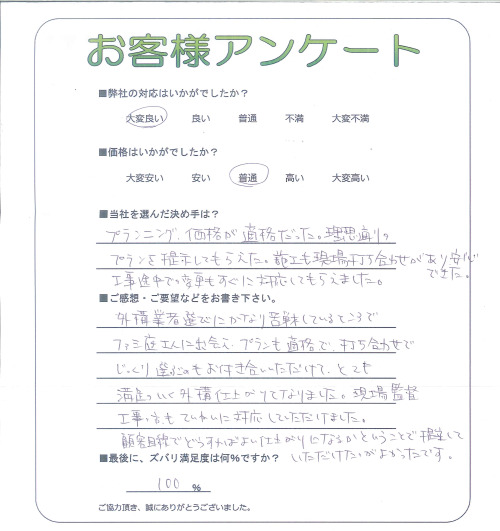 お客様アンケート
■弊社の対応はいかがでしたか？
大変良い 良い 普通 不満 大変不満
■価格はいかがでしたか？
大変安い 安い 普通 高い 大変高い
■当社を選んだ決め手は？
プランニング、価格が適格だった。理想通りの
プランを提示してもらえた。施工も現場打ち合わせがあり安心
できた。
工事途中での変更もすぐに対応してもらえました。
■ご感想・ご要望などをお書き下さい。
外構業者選びにかなり苦戦しているところで
ファミ庭さんにお会え、プランも適格で、打ち合わせで
じっくり もお付き合いいただけて、とても
満足のいく外構仕上がりになりました。現場監督
工事 もていねいに対応していただけました。
顧客目線でどうすればよい仕上がりになるかということで提案して
いただけたのがよかったです。
■最後に、ズバリ満足度は何％ですか？
100 %
ご協力頂き、誠にありがとうございました。